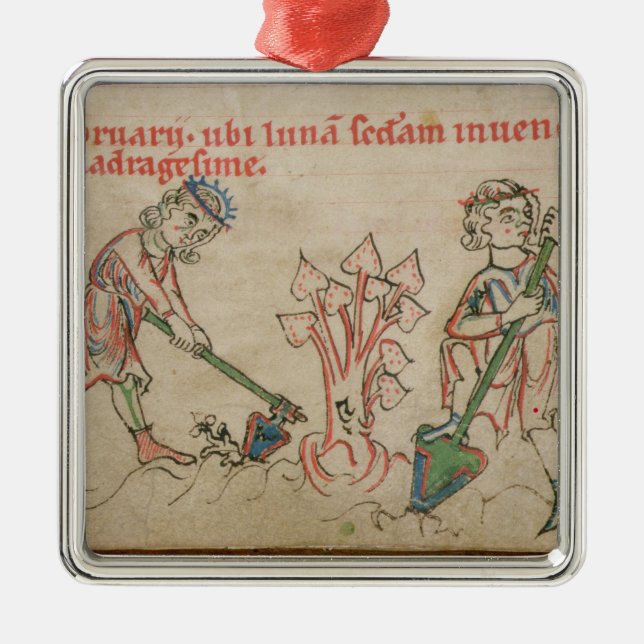 bruarÿ · ubi lunā scđam inuen
adragesime.